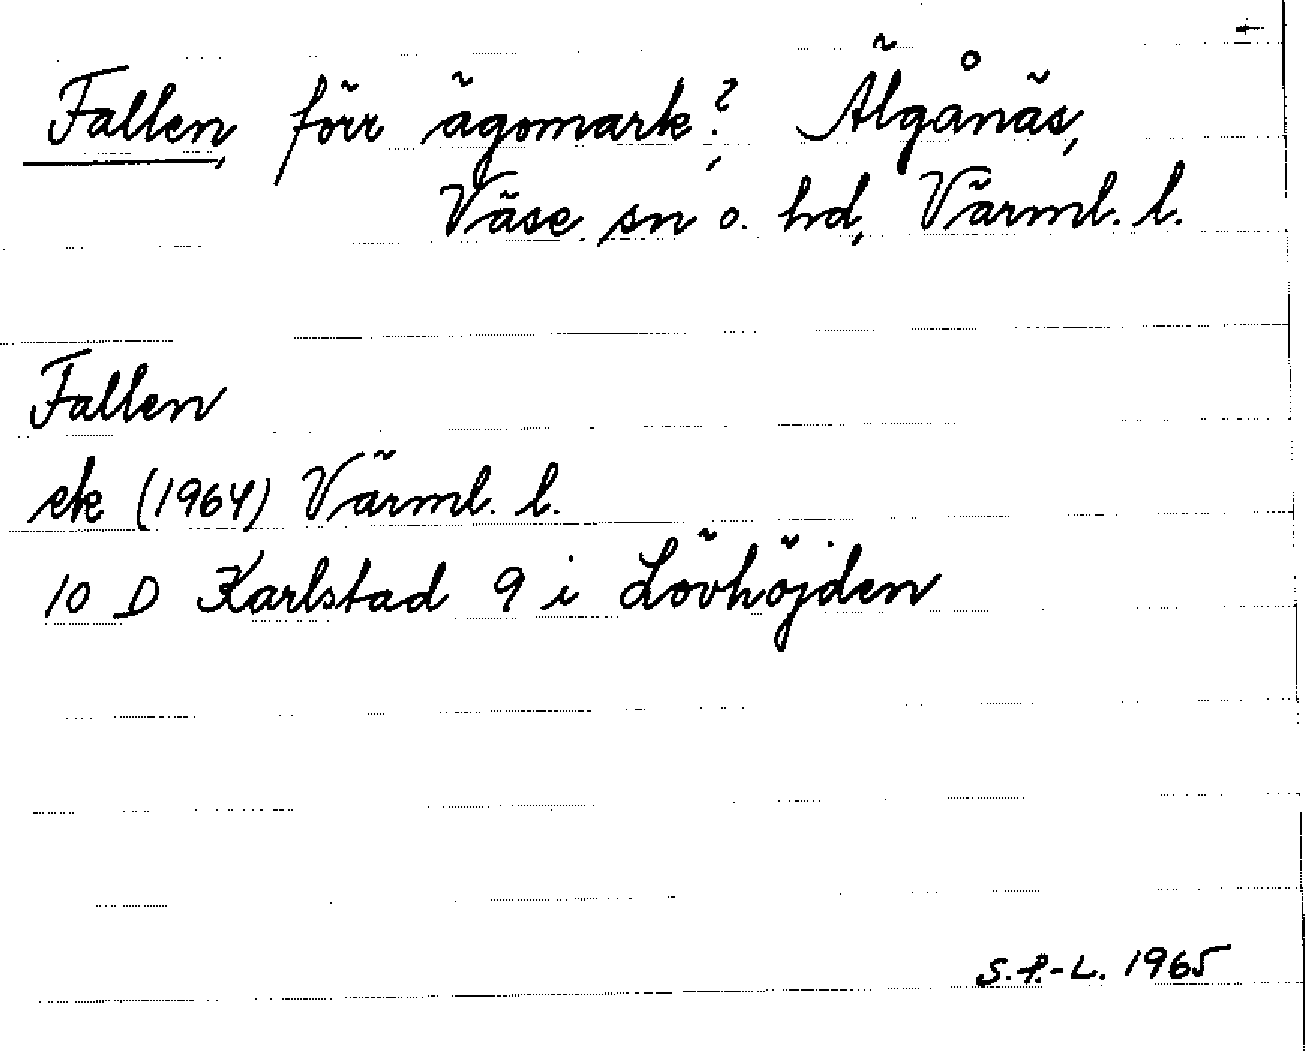 Fallen, förr ägomark?, Älgånäs,
Väse sn o. hd, Värml. l.
Fallen
ek (1964) Värml. l.
10 D Karlstad 9 i Lövhöjden
S.P.-L. 1965